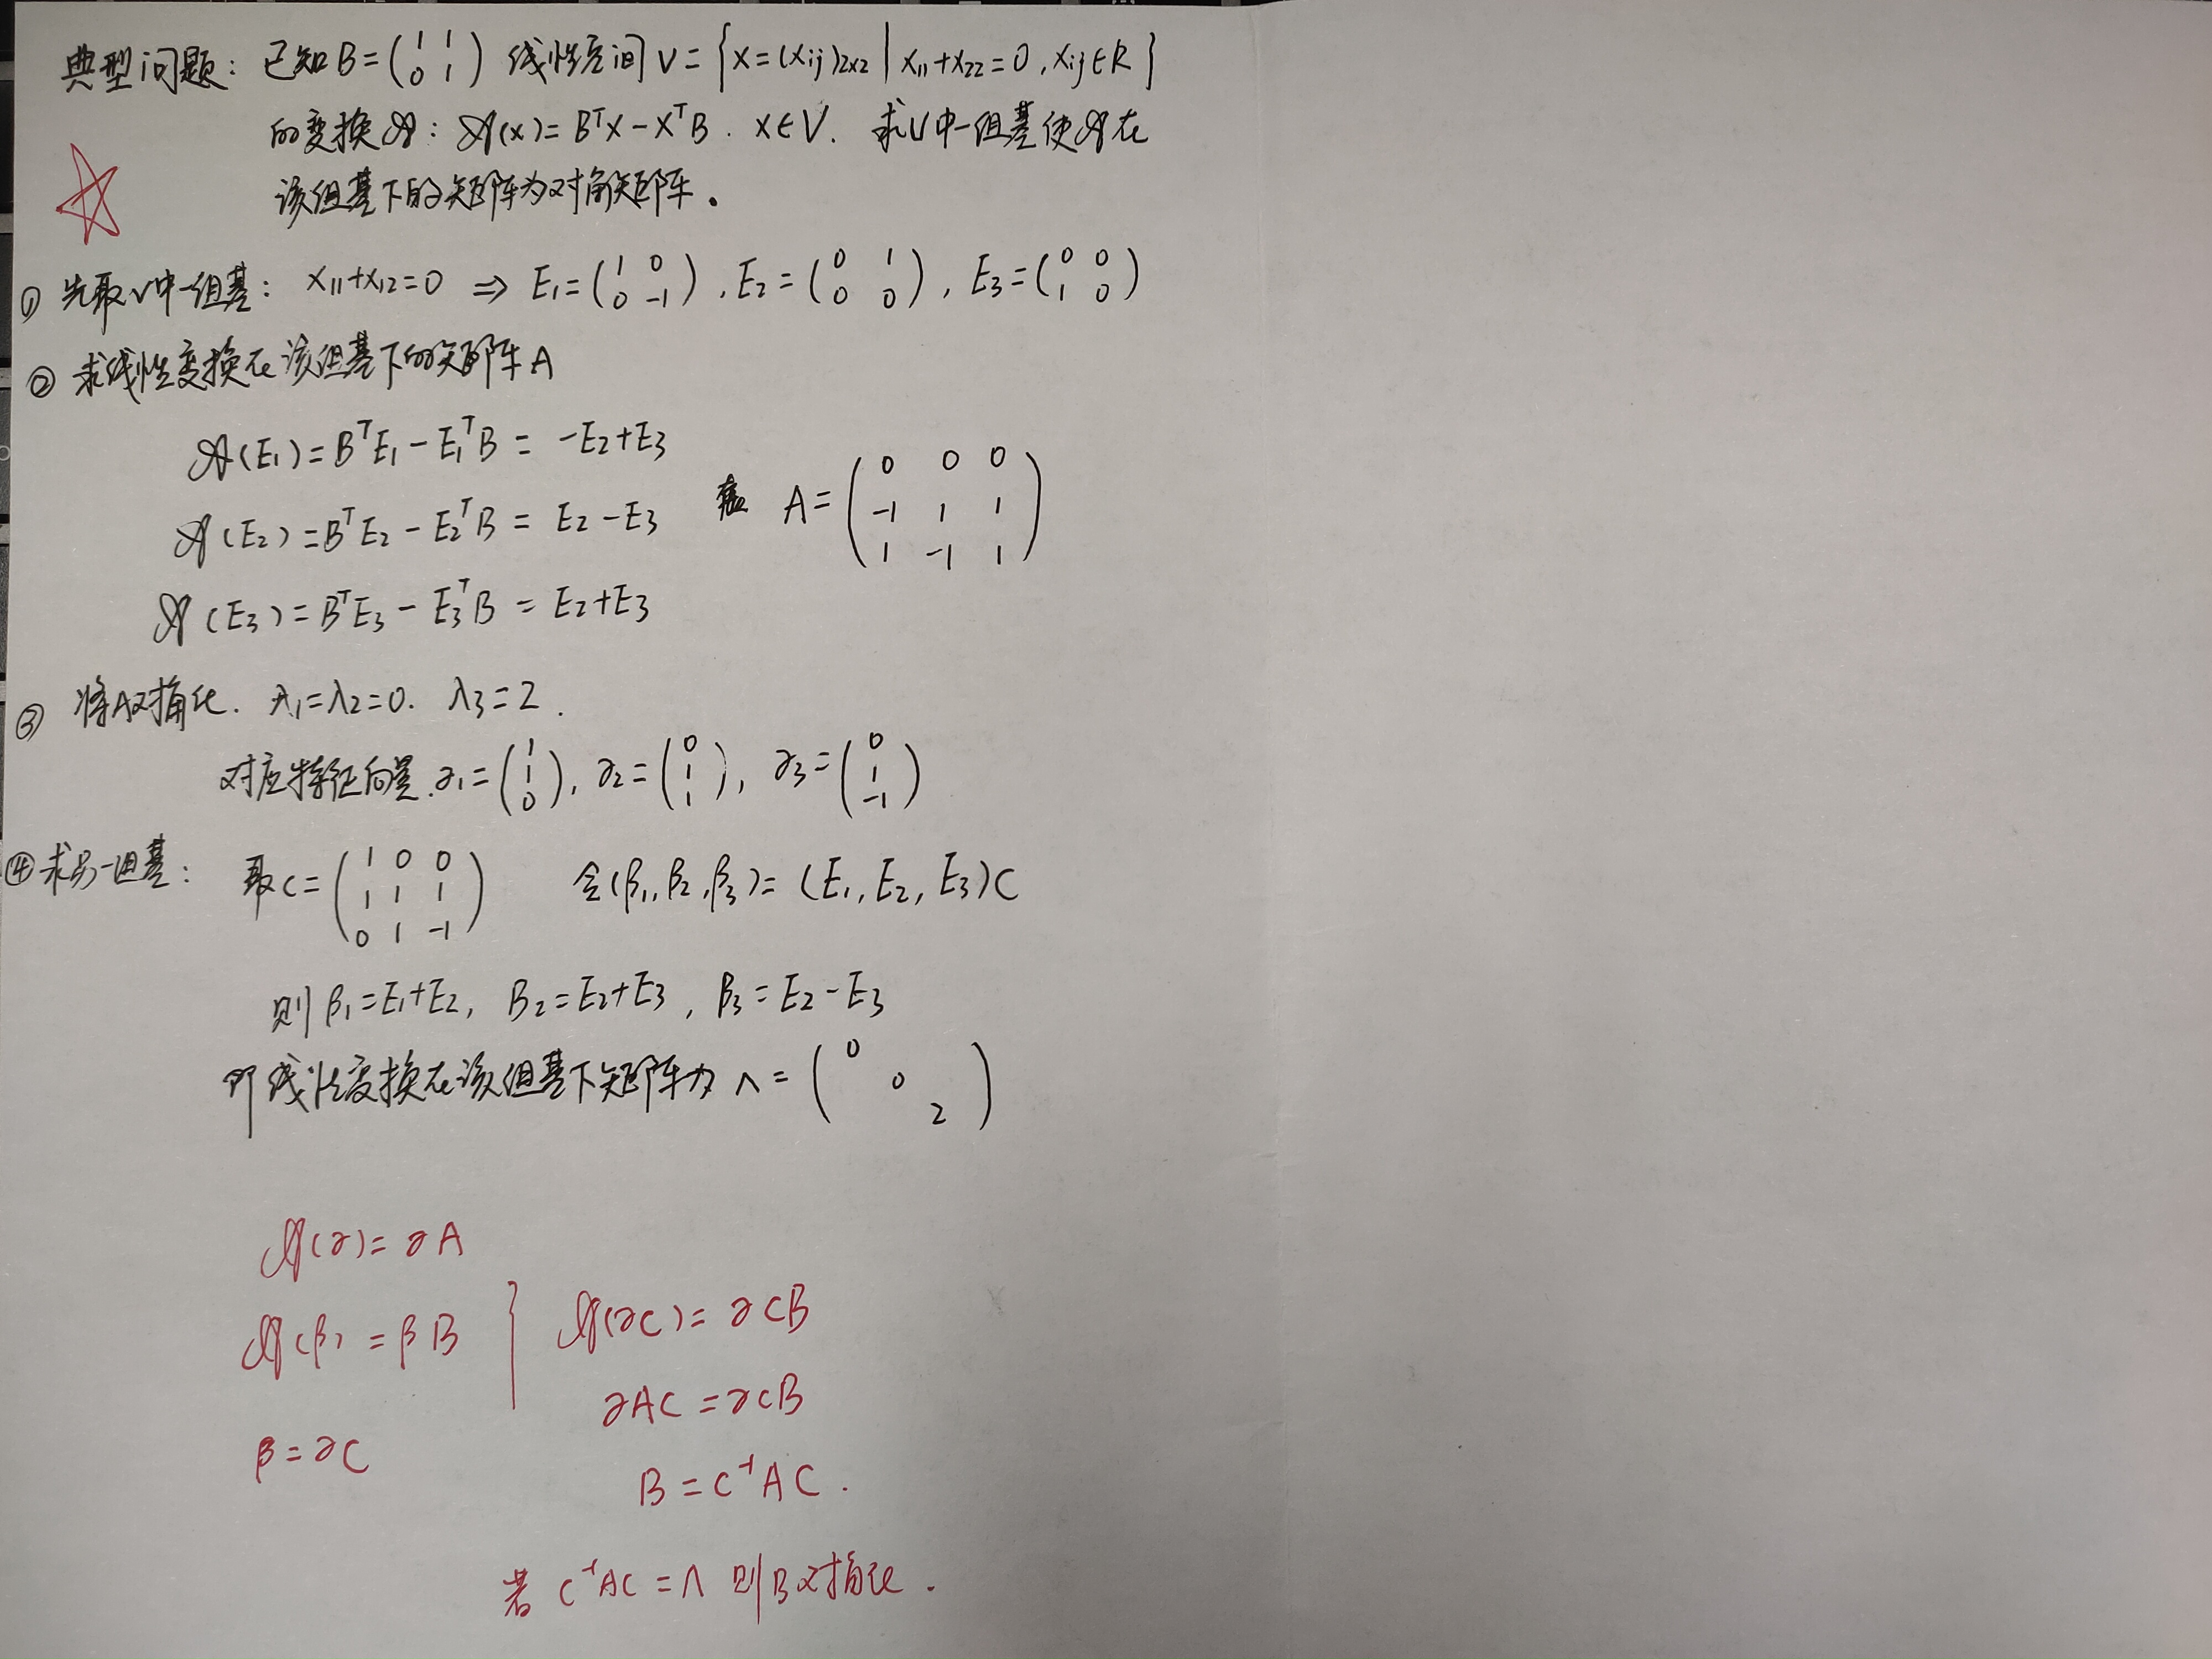 典型问题: 已知B=(1 1; 0 1) 线性空间 V={X=(xij)2x2 | x11+x22=0, xij∈R}
的变换𝒜: 𝒜(x)=BᵀX-XᵀB. X∈V. 求V中一组基使𝒜在
该组基下的矩阵为对角矩阵.
① 先取V中一组基: x11+x12=0 ⇒ E1=(1 0; 0 -1), E2=(0 1; 0 0), E3=(0 0; 1 0)
② 求线性变换在该组基下的矩阵A
𝒜(E1)=BᵀE1-E1ᵀB=-E2+E3
𝒜(E2)=BᵀE2-E2ᵀB=E2-E3
A=(0 0 0; -1 1 1; 1 -1 1)
𝒜(E3)=BᵀE3-E3ᵀB=E2+E3
③ 将A对角化. λ1=λ2=0. λ3=2.
对应特征向量.α1=(1; 1; 0), α2=(0; 1; 1), α3=(0; 1; -1)
④求另一组基: 取C=(1 0 0; 1 1 1; 0 1 -1) 令(β1,β2,β3)=(E1,E2,E3)C
则β1=E1+E2, B2=E2+E3, β3=E2-E3
即线性变换在该组基下矩阵为Λ=(0 0 2)
𝒜(α)=αA
𝒜(β)=βB } 𝒜(αC)=αCB
αAC=αCB
β=αC
B=C⁻¹AC.
若C⁻¹AC=Λ 则B对角化.